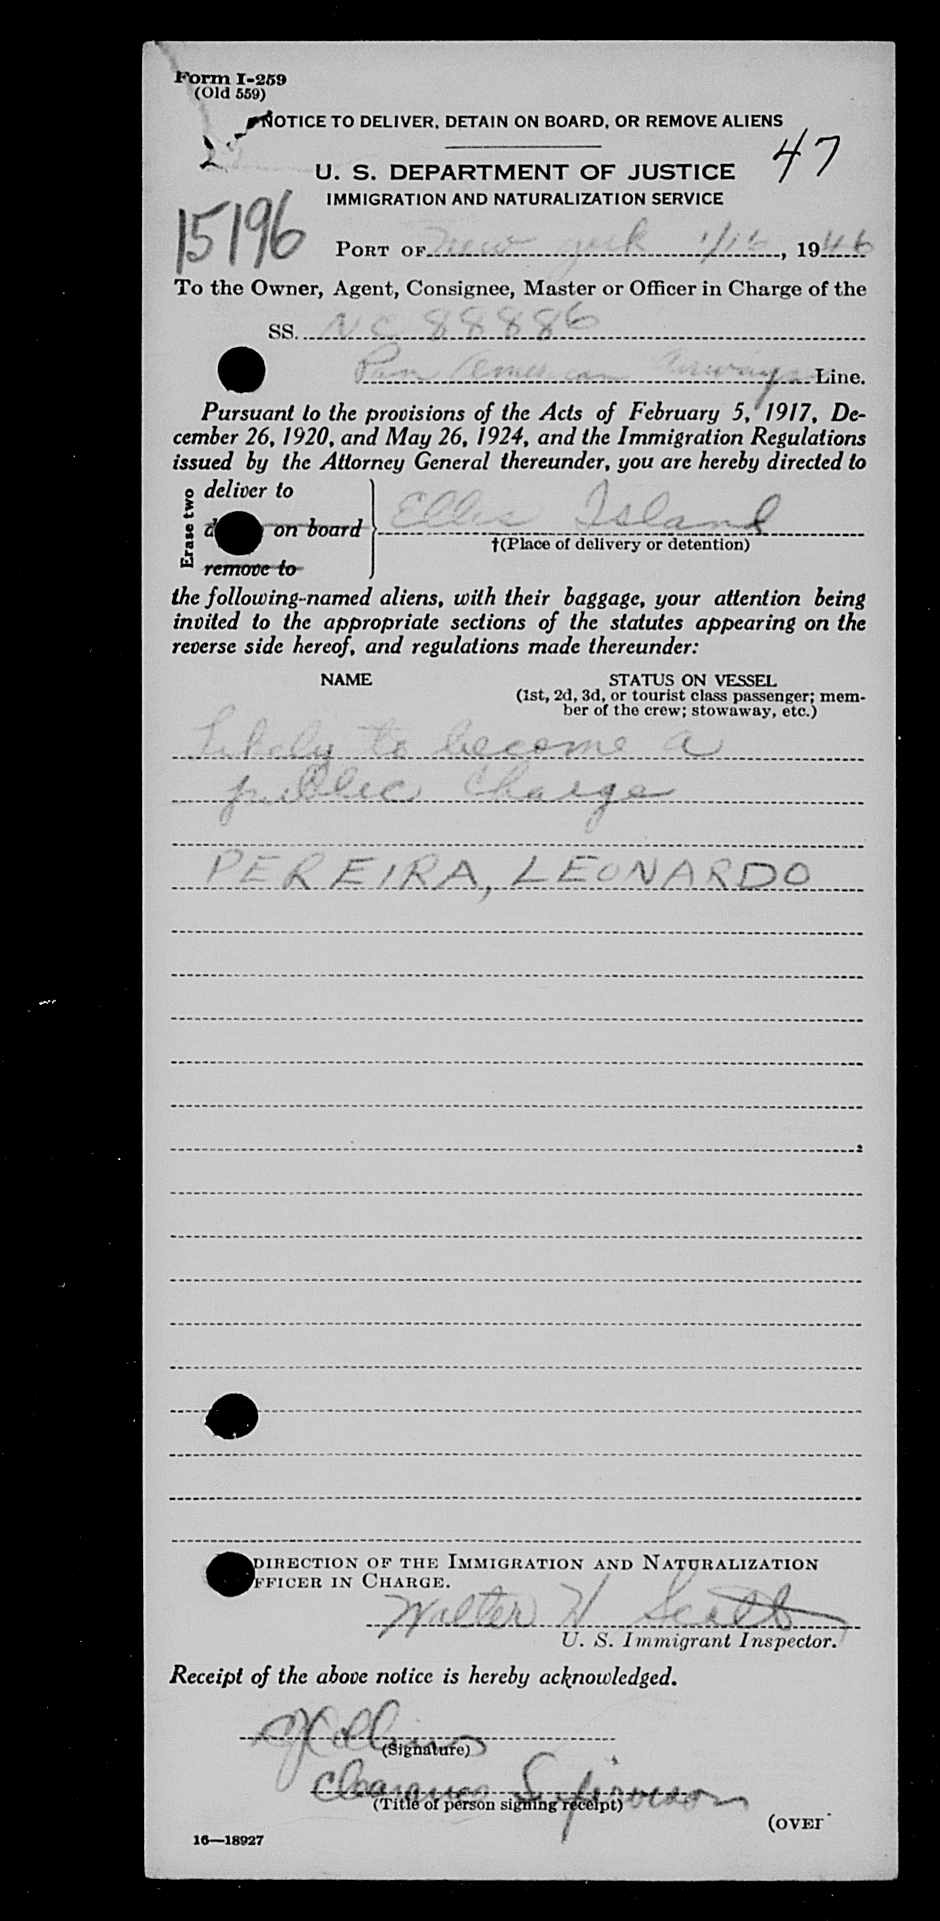 Form I-259
(Old 559)
NOTICE TO DELIVER, DETAIN ON BOARD, OR REMOVE ALIENS
47
U. S. DEPARTMENT OF JUSTICE
IMMIGRATION AND NATURALIZATION SERVICE
15196
PORT OF New York 1/16, 1946
To the Owner, Agent, Consignee, Master or Officer in Charge of the
SS. NC 88886
Pan American Airways Line.
Pursuant to the provisions of the Acts of February 5, 1917, De-
cember 26, 1920, and May 26, 1924, and the Immigration Regulations
issued by the Attorney General thereunder, you are hereby directed to
Erase two
deliver to
on board
remove to
Ellis Island
†(Place of delivery or detention)
the following-named aliens, with their baggage, your attention being
invited to the appropriate sections of the statutes appearing on the
reverse side hereof, and regulations made thereunder:
NAME STATUS ON VESSEL
(1st, 2d, 3d, or tourist class passenger; mem-
ber of the crew; stowaway, etc.)
Likely to become a
public charge
PEREIRA, LEONARDO
DIRECTION OF THE IMMIGRATION AND NATURALIZATION
FFICER IN CHARGE.
Walter H Scott
U. S. Immigrant Inspector.
Receipt of the above notice is hereby acknowledged.
(Signature)
Clearance
(Title of person signing receipt)
(OVER
16—18927